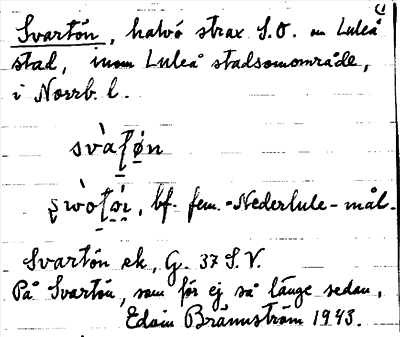 Svartön, halvö strax S.O. om Luleå
stad, inom Luleå stadsområde,
i Norrb. l.
svàʈøn
ʂwòʈøi, bf. fem. = Nederlule-mål.
Svartön ek, G. 37 S.V.
På Svartön, som för ej så länge sedan,
Edvin Brännström 1943.